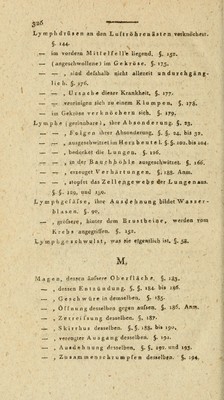 326
Lymphdrüsen an den Luftröhrenästen verknöchert.
§. 144.
— im vordern Mittelfelle liegend, §. 152.
— (angeschwollene) im Gekröse, §. 175.
— —, sind deshalb nicht allezeit undurchgäng-
lich, §. 176.
— —, Ursache dieser Krankheit, §. 177.
— vereinigen sich zu einem Klumpen, §. 178.
— im Gekröse verknöchern sich, §. 179.
Lymphe (gerinnbare), ihre Absonderung, §. 23.
— —, Folgen ihrer Absonderung, §. §. 24. bis 32.
— —, ausgeschwitzet im Herzbeutel, §. §. 102. bis 104.
— —, bedecket die Lungen, §. 126.
— —, in der Bauchhöhle ausgeschwitzet, §. 166.
— —, erzeuget Verhärtungen, §. 185. Anm.
— —, stopfet das Zellengewebe der Lungen aus.
§. §. 129. und 130.
Lymphgefässe, ihre Ausdehnung bildet Wasser-
blasen, §. 90.
— grössere, hinter dem Brustbeine, werden vom
Krebs angegriffen, §. 152.
Lymphgeschwulst, was sie eigentlich ist, §. 58.
M.
Magen, dessen äussere Oberfläche, §. 183.
—, dessen Entzündung, §. §. 184. bis 186.
—, Geschwüre in demselben, §. 185.
—, Öffnung desselben gegen aussen, §. 186. Anm.
—, Zerreissung desselben, §. 187.
—, Skirrhus desselben, §. §. 188. bis 190.
—, verengter Ausgang desselben, §. 191.
—, Ausdehnung desselben, §. §. 192. und 193.
—, Zusammenschrumpfen desselben, §. 194.